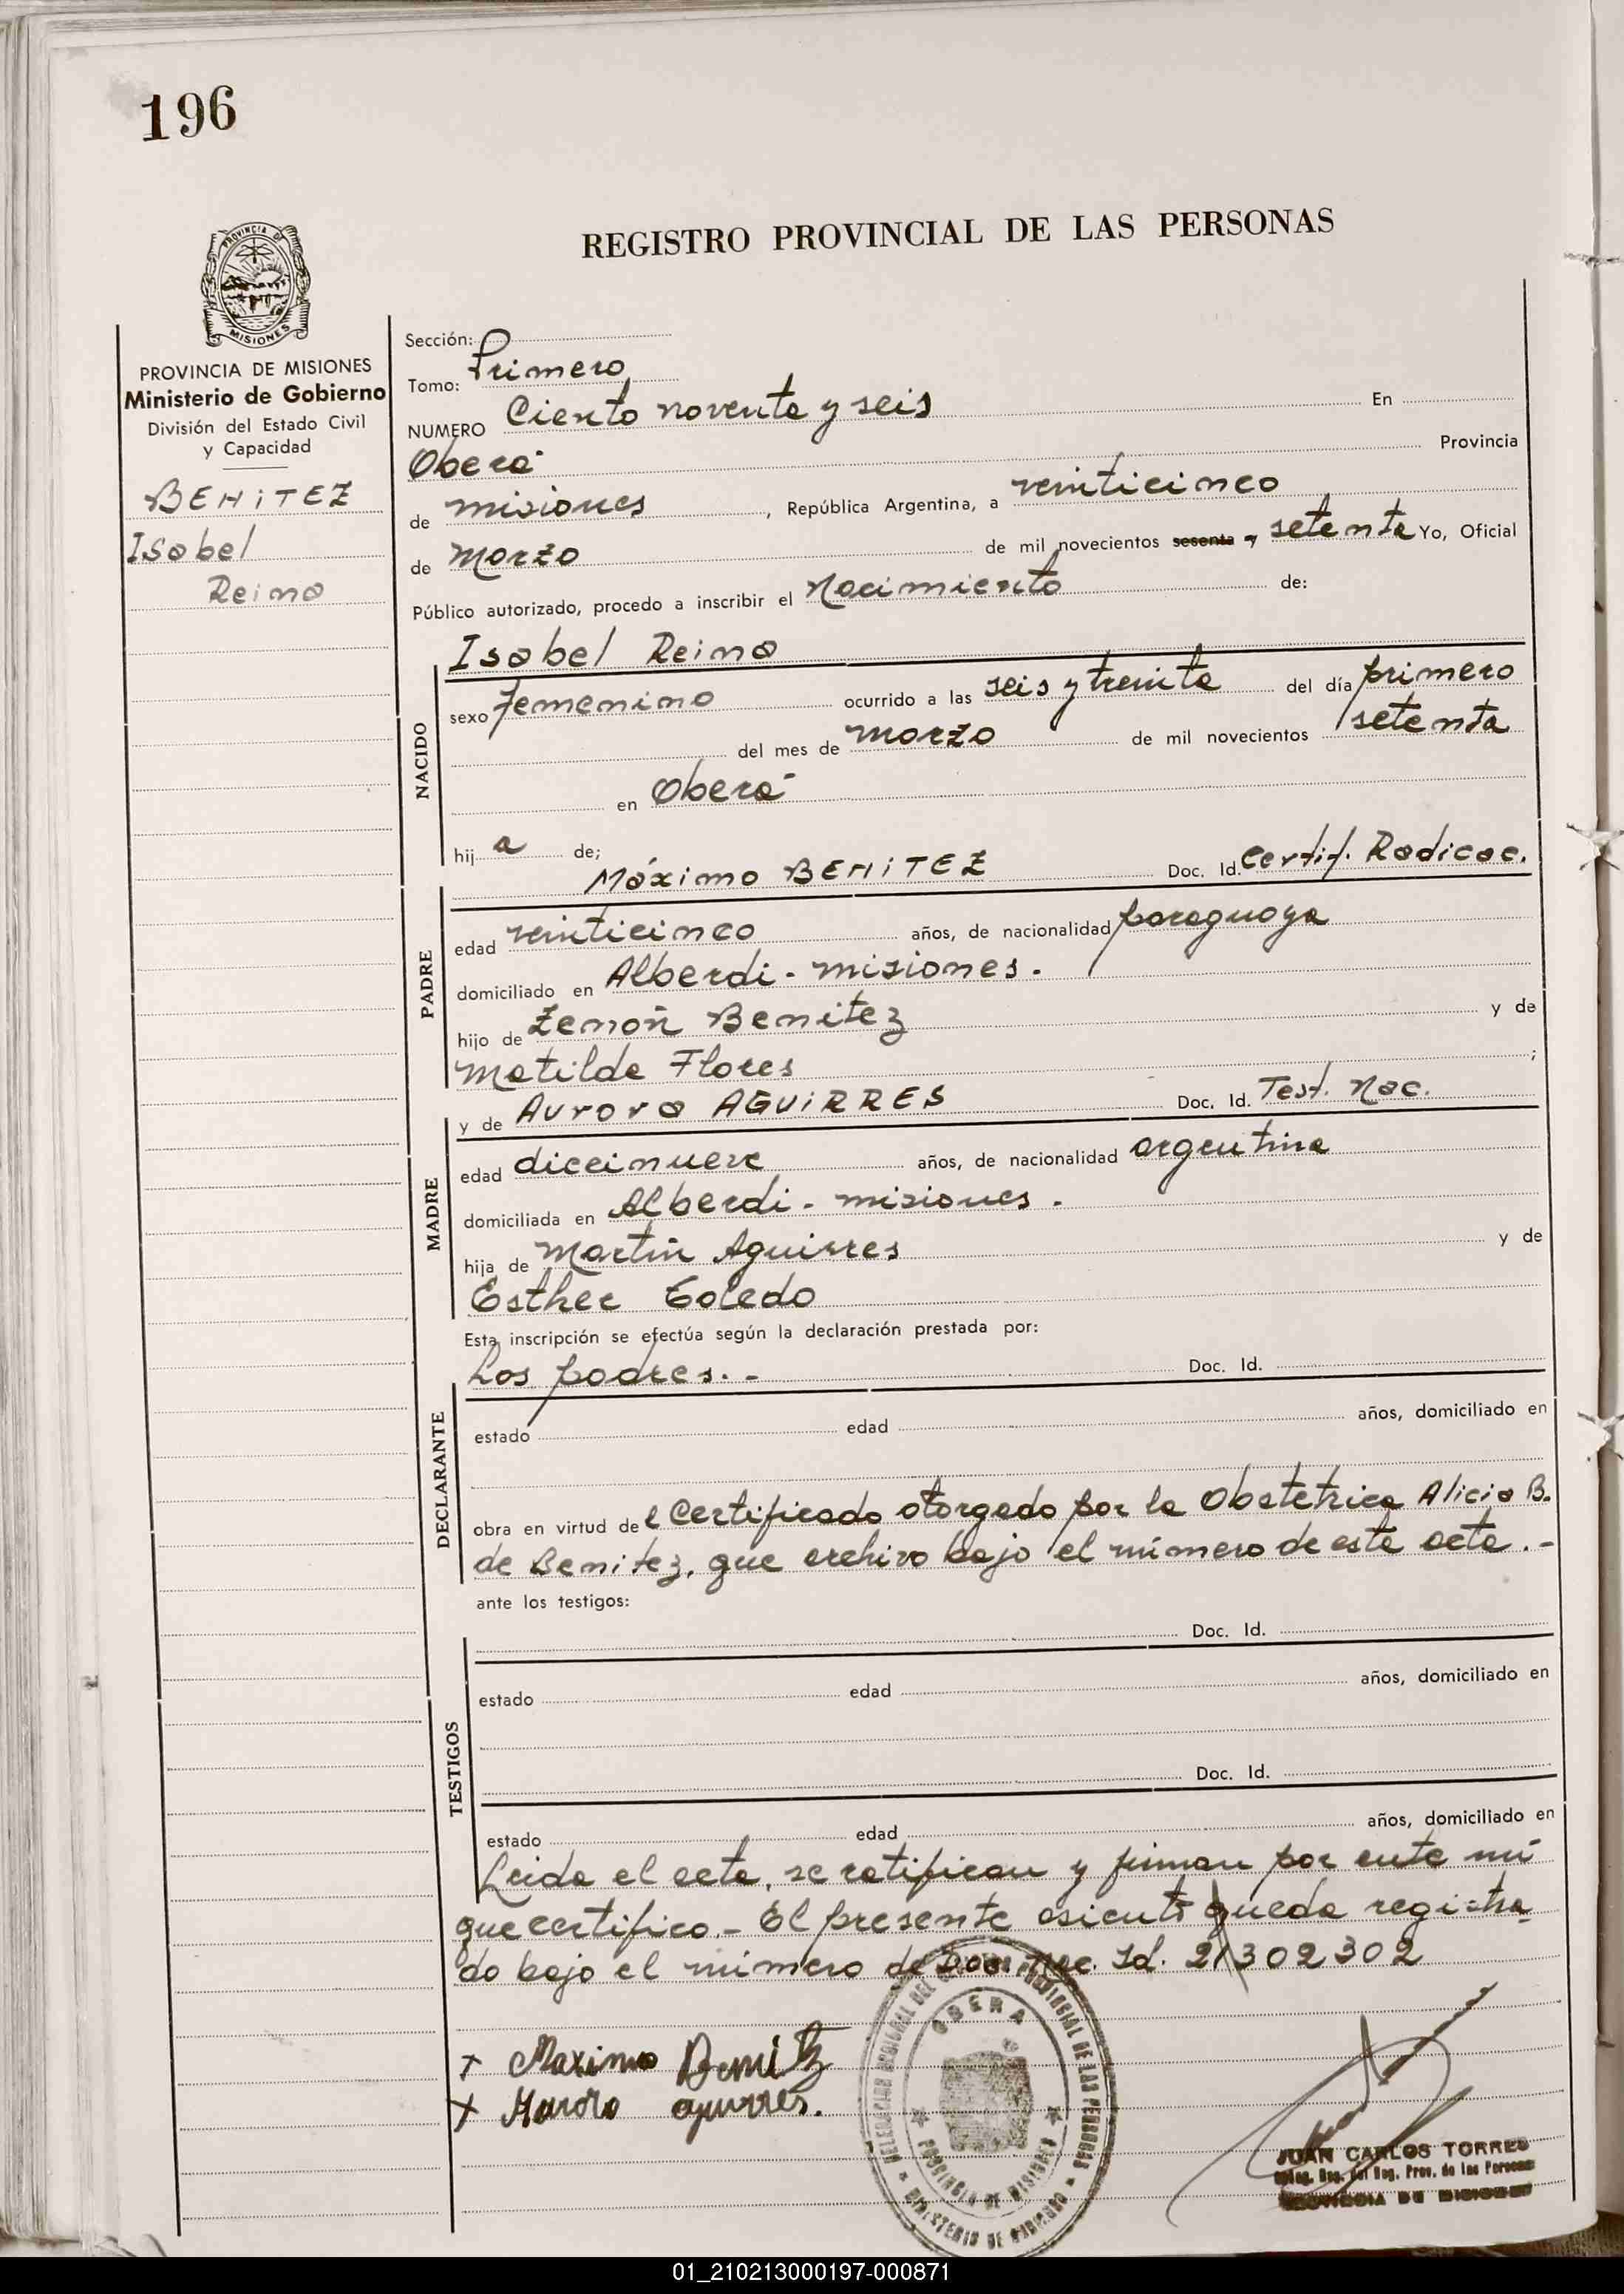 196
REGISTRO PROVINCIAL DE LAS PERSONAS
PROVINCIA DE
MISIONES
PROVINCIA DE MISIONES
Ministerio de Gobierno
División del Estado Civil
y Capacidad
BENiTEZ
Isabel
Reina
Sección:
Tomo: Primero
NUMERO Ciento noventa y seis En
Oberá Provincia
de misiones , República Argentina, a veinticinco
de Marzo de mil novecientos sesenta y setenta Yo, Oficial
Público autorizado, procedo a inscribir el Nacimiento de:
Isabel Reina
NACIDO
sexo femenino ocurrido a las seis y treinta del día primero
del mes de marzo de mil novecientos setenta
en Oberá
hij a de;
Máximo BENiTEZ Doc. Id. Certif. Radicac.
PADRE
edad veinticinco años, de nacionalidad paraguaya
domiciliado en Alberdi - misiones .
hijo de Zenón Benitez y de
Matilde Flores ;
y de Aurora AGUiRRES Doc. Id. Test. Nac.
MADRE
edad diecinueve años, de nacionalidad argentina
domiciliada en Alberdi - misiones .
hija de Martín Aguirres y de
Esther Toledo
Esta inscripción se efectúa según la declaración prestada por:
Los padres. - Doc. Id.
DECLARANTE
estado edad años, domiciliado en
obra en virtud de l Certificado otorgado por la Obstetrica Alicia B.
de Benitez, que archivo bajo el número de esta acta . -
ante los testigos:
Doc. Id.
TESTIGOS
estado edad años, domiciliado en
Doc. Id.
estado edad años, domiciliado en
Leida el acta, se ratifican y firman por ante mí
que certifico. - El presente asiento queda registra
do bajo el número de Doc. Nac. Id. 21302302
x Maximo Benitz
x Aurora aguirres.
OBERA
PROVINCIA DE MISIONES
MINISTERIO DE GOBIERNO
JUAN CARLOS TORRES
Reg. Prov. de las Personas
PROVINCIA DE MISIONES
01_210213000197-000871